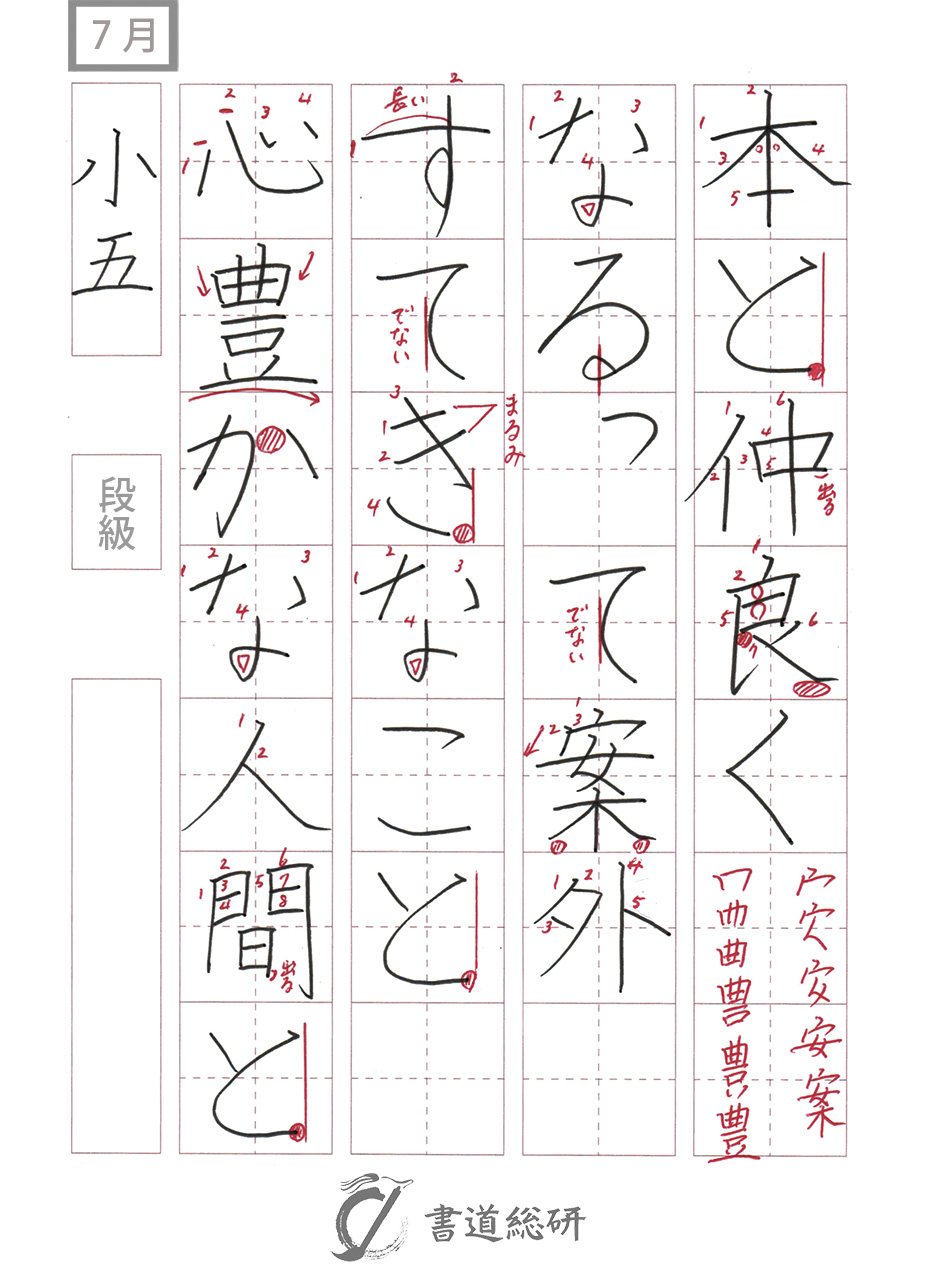 7月
本と仲良く
出る
宀安案
豊
なるって案外
でない
すてきなこと
長い
でない
まるみ
心豊かな人間と
出る
小五
段級
書道総研